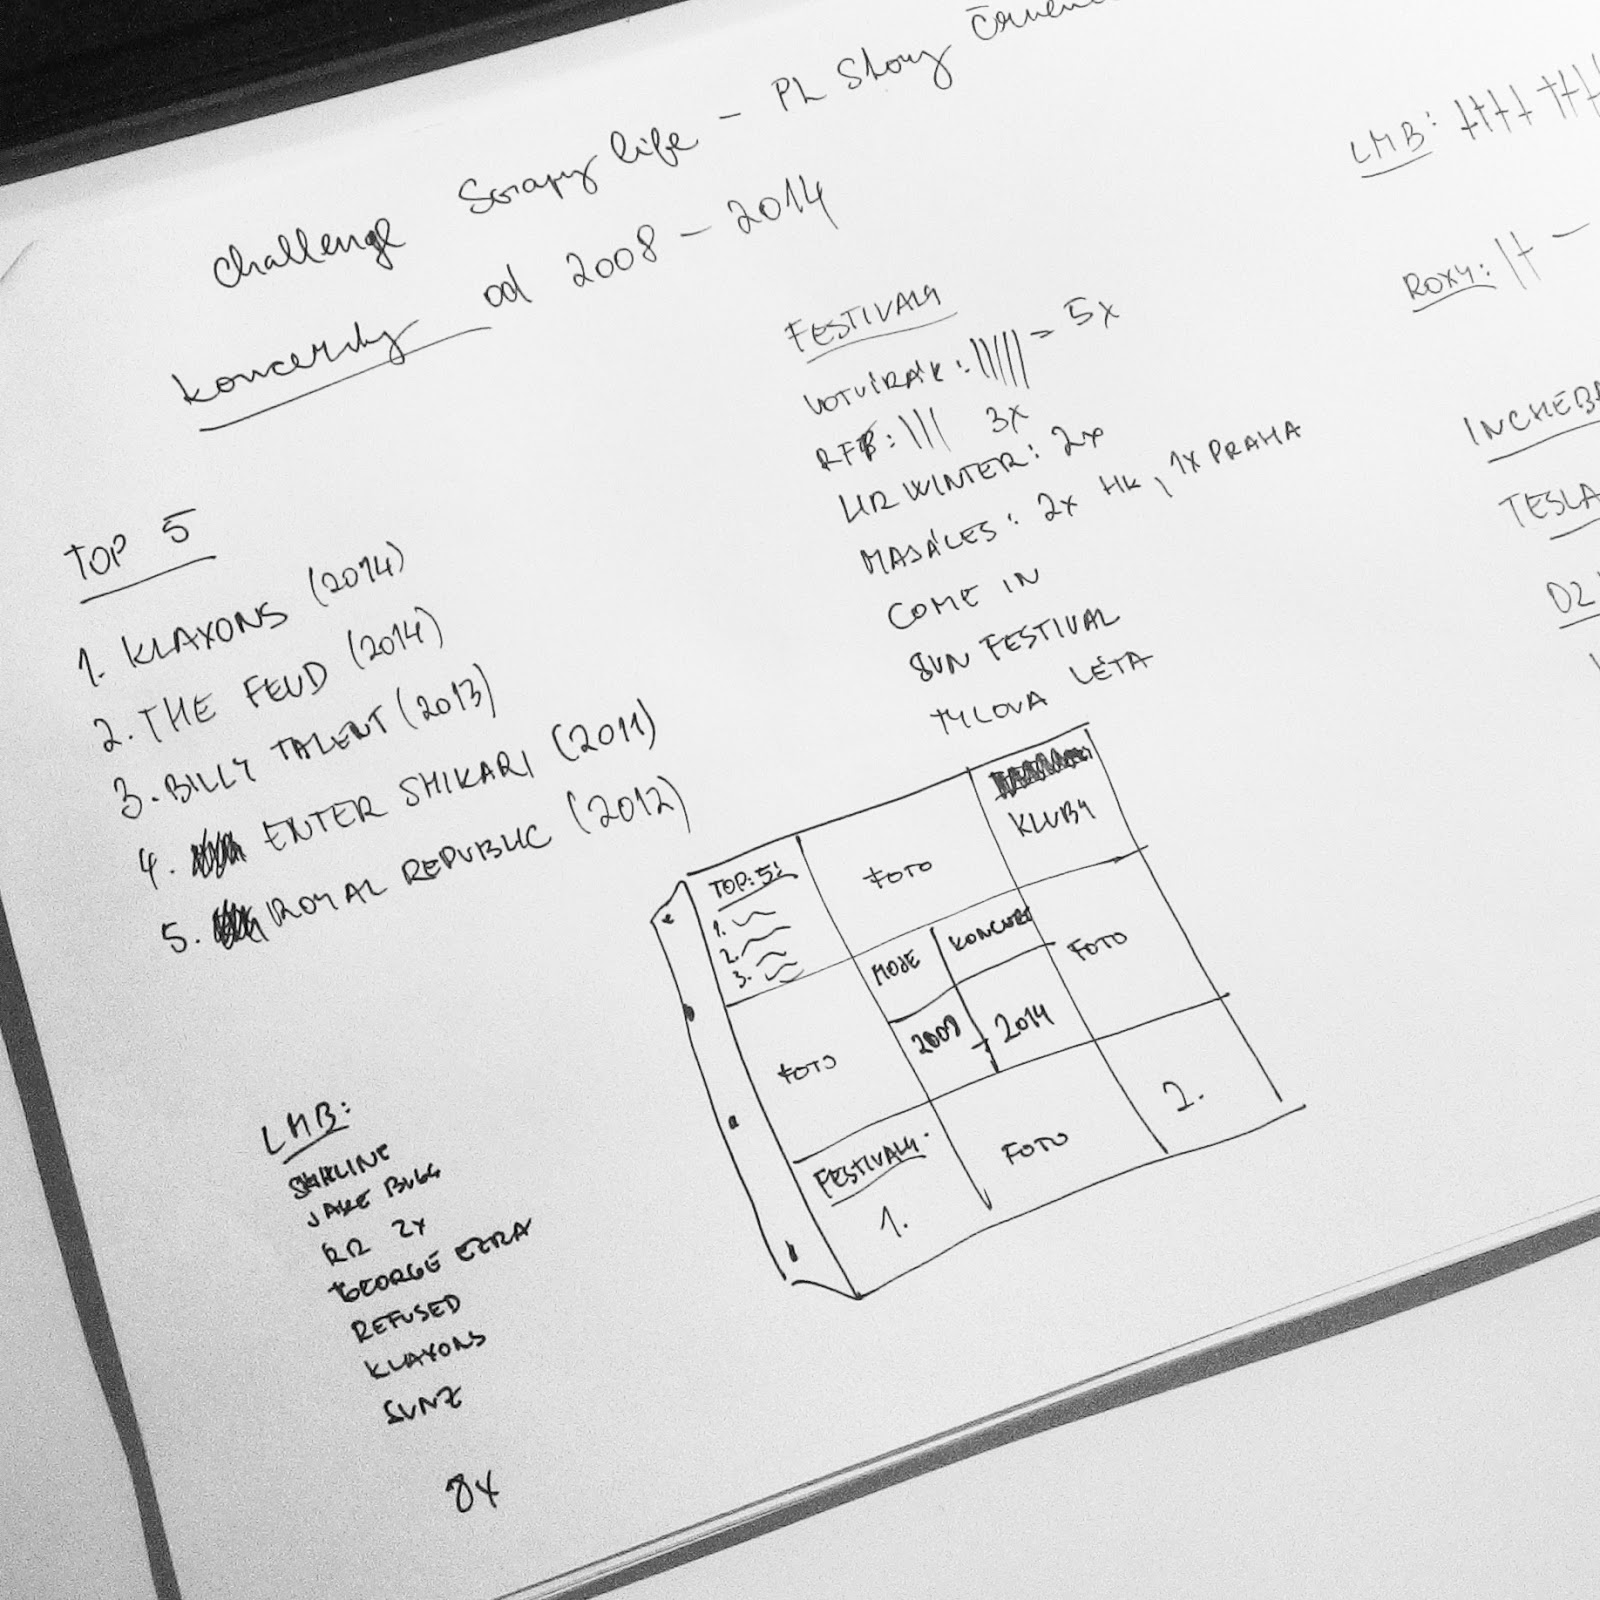 Challenge Scrapy life - PL Story
Koncerty od 2008 - 2014
TOP 5
1. KLAXONS (2014)
2. THE FEUD (2014)
3. BILLY TALENT (2013)
4. ENTER SHIKARI (2011)
5. ROYAL REPUBLIC (2012)
FESTIVALY
VOTVÍRÁK: ||||| = 5x
RFP: ||| 3x
HR WINTER: 2x
MAJÁLES: 2x HK, 1x PRAHA
COME IN
SUN FESTIVAL
TYLOVA LÉTA
LMB:
ROXY: || -
INCHEBA
TESLA
D2
LMB:
SKYLINE
JAKE BUGG
RR 2x
GEORGE EZRA
REFUSED
KLAXONS
SUNZ
8x
TOP: 5!
1.
2.
3.
FOTO
KLUBY
FOTO
MOJE KONCERT
2008 - 2014
FOTO
FESTIVALY.
1.
FOTO
2.